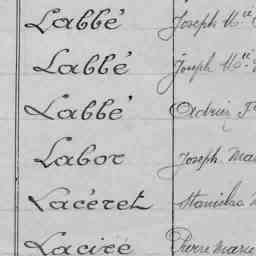 Labbé Joseph M.ie
Labbé Joseph M.ie
Labbé Adrien F
Labor Joseph Mar
Lacéret Stanislas M
Laciré Pierre Marie